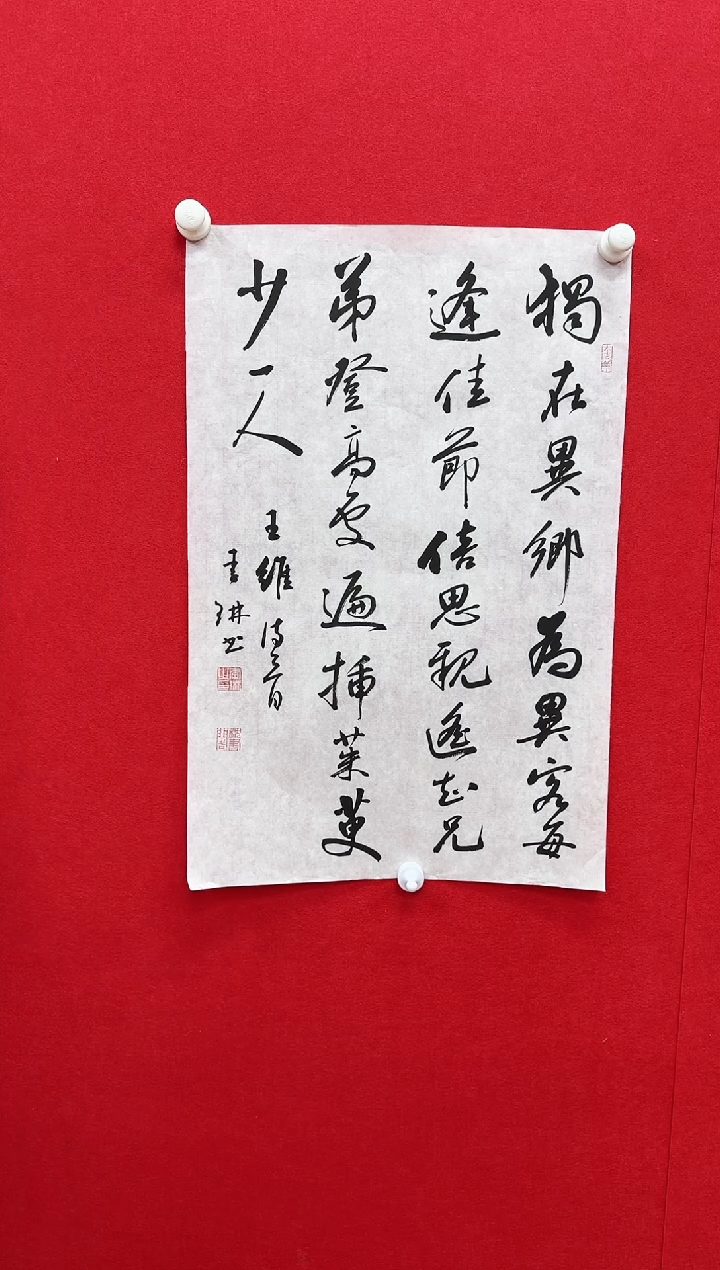 獨在異鄉為異客每
逢佳節倍思親遙知兄
弟登高處遍插茱萸
少一人
王維詩一首
琳书